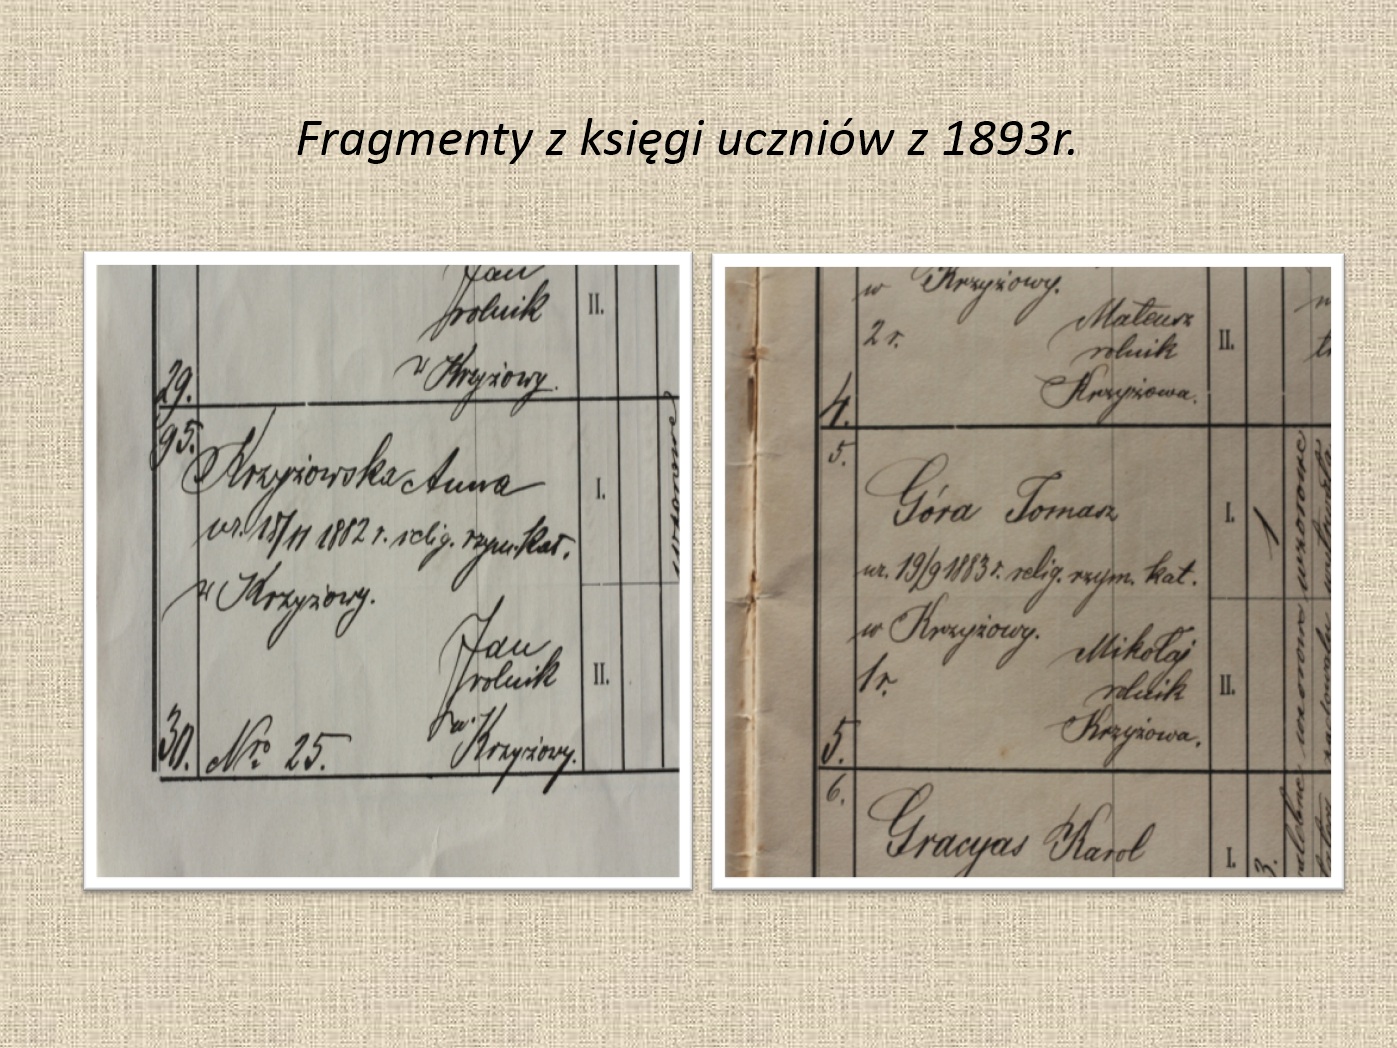 Fragmenty z księgi uczniów z 1893r.
Jan
rolnik
II.
w Krzyżowy.
29.
95.
Krzyżowska Anna
I.
ur. 18/11 1882 r. relig. rzym. kat.
w Krzyżowy.
Jan
rolnik
II.
w Krzyżowy.
30. Nro 25.
w Krzyżowy.
2 r.
Mateusz
rolnik
II.
Krzyżowa.
4.
5.
Góra Tomasz
I.
1
ur. 19/9 1883 r. relig. rzym. kat.
w Krzyżowy.
1 r.
Mikołaj
rolnik
II.
Krzyżowa.
5.
6.
Gracyas Karol
I.
3.
wzorowe